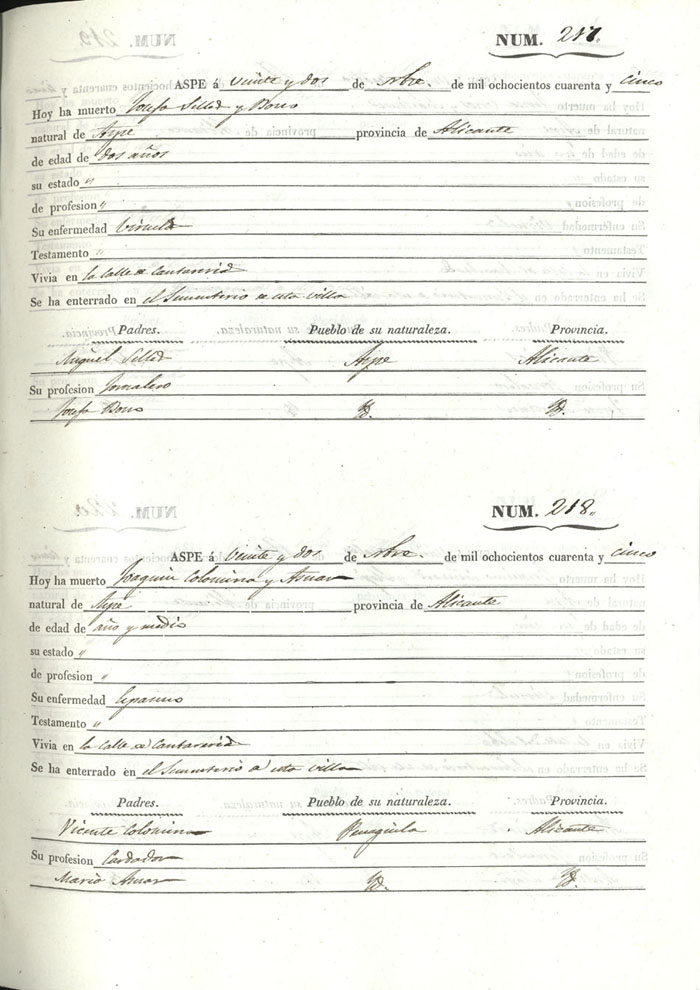 NUM. 217.
ASPE á veinte y dos de Nbre. de mil ochocientos cuarenta y cinco
Hoy ha muerto Josefa y
natural de Aspe provincia de Alicante
de edad de dos años
su estado "
de profesion "
Su enfermedad Viruela
Testamento "
Vivia en la Calle de
Se ha enterrado en el de esta villa
Padres. Pueblo de su naturaleza. Provincia.
Miguel Aspe Alicante
Su profesion Jornalero
Josefa Id. Id.
NUM. 218.
ASPE á veinte y dos de Nbre. de mil ochocientos cuarenta y cinco
Hoy ha muerto Joaquin Colomina y Asnar
natural de Aspe provincia de Alicante
de edad de año y medio
su estado "
de profesion "
Su enfermedad Espasmo
Testamento "
Vivia en la Calle de
Se ha enterrado en el de esta villa
Padres. Pueblo de su naturaleza. Provincia.
Vicente Colomina Penaguila Alicante
Su profesion Cardador
Maria Asnar Id. Id.